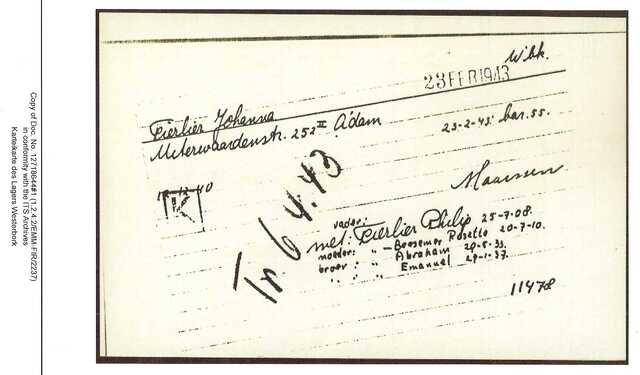 Copy of Doc. No. 12718644#1 (1.2.4.2/EMM-FIR/2237)
in conformity with the ITS Archives
Karteikarte des Lagers Westerbork
Wbk.
23 FEB 1943
Fierlier Johanna
Uiterwaardenstr. 252 II A'dam
23-2-43. bar. 55.
12-12-40
K
Maarssen
Tr. 6 4.43
vader:
met: Fierlier Philip 25-7-08.
moeder: " - Beesemer Rosette 20-7-10.
broer: " Abraham
" : " Emanuel 29-1-37.
11478